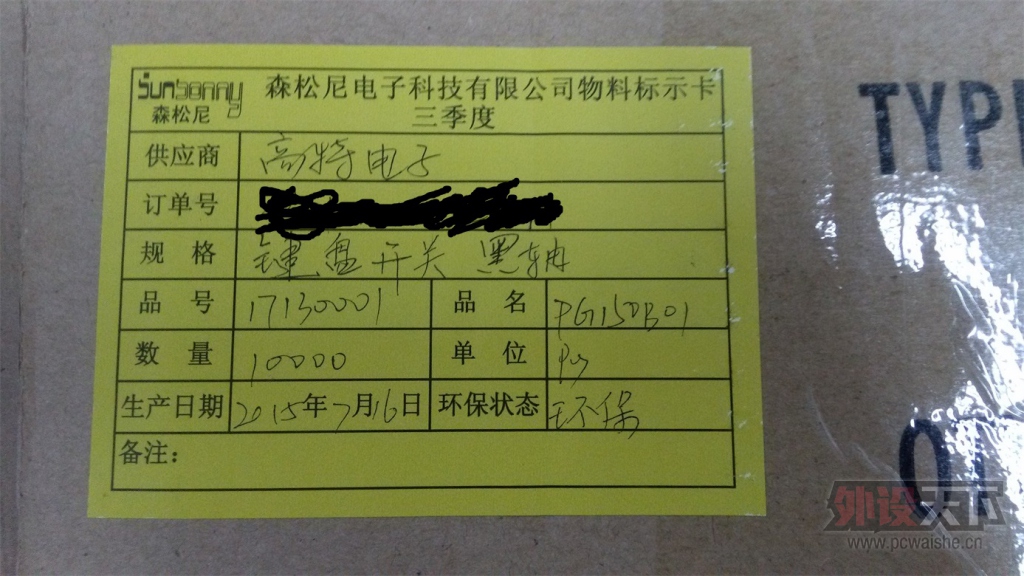 Sunsonny 森松尼电子科技有限公司物料标示卡
森松尼 三季度
供应商 高特电子
订单号
规格 键盘开关 黑轴
品号 17130001 品名 PG150B01
数量 10000 单位
生产日期 2015年7月16日 环保状态 环保
备注：
TYP
外设天下
www.pcwaishe.cn